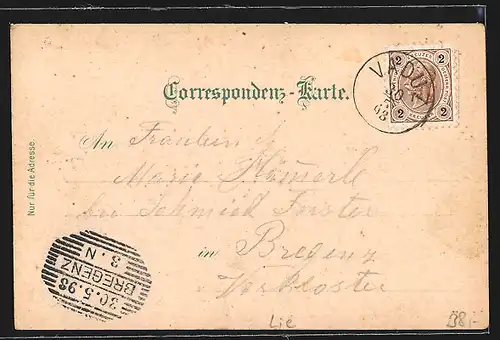 Correspondenz-Karte.
2 KREUZER 2
VADUZ
2 2
An Fräulein
Marie
bei Schmied Forster
in Bregenz
Vorkloster
Nur für die Adresse.
BREGENZ
30.5.98
3.N
Lie
38,-